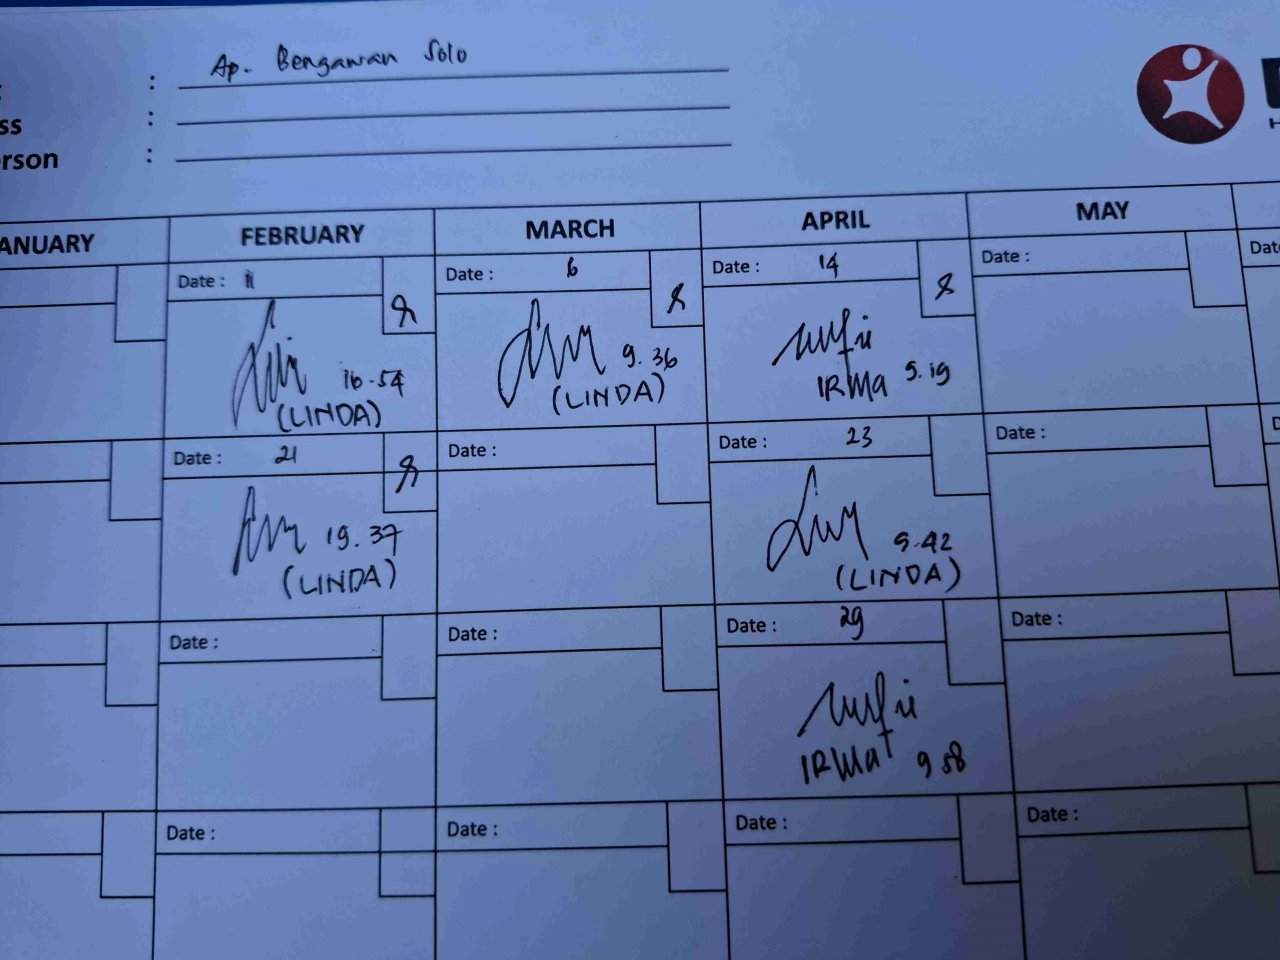 : Ap. Bengawan Solo
ss :
erson :
ANUARY FEBRUARY MARCH APRIL MAY
Date : 11 Date : 6 Date : 14 Date : Dat
16.54 9.36 IRMA 9.19
(LINDA) (LINDA)
Date : 21 Date : Date : 23 Date :
19.37 9.42
(LINDA) (LINDA)
Date : Date : Date : 29 Date :
IRMA 9 58
Date : Date : Date : Date :